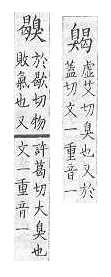 虛艾切臭也又於
蓋切文一重音一
於歇切物
敗氣也又
許葛切大臭也
文一重音一